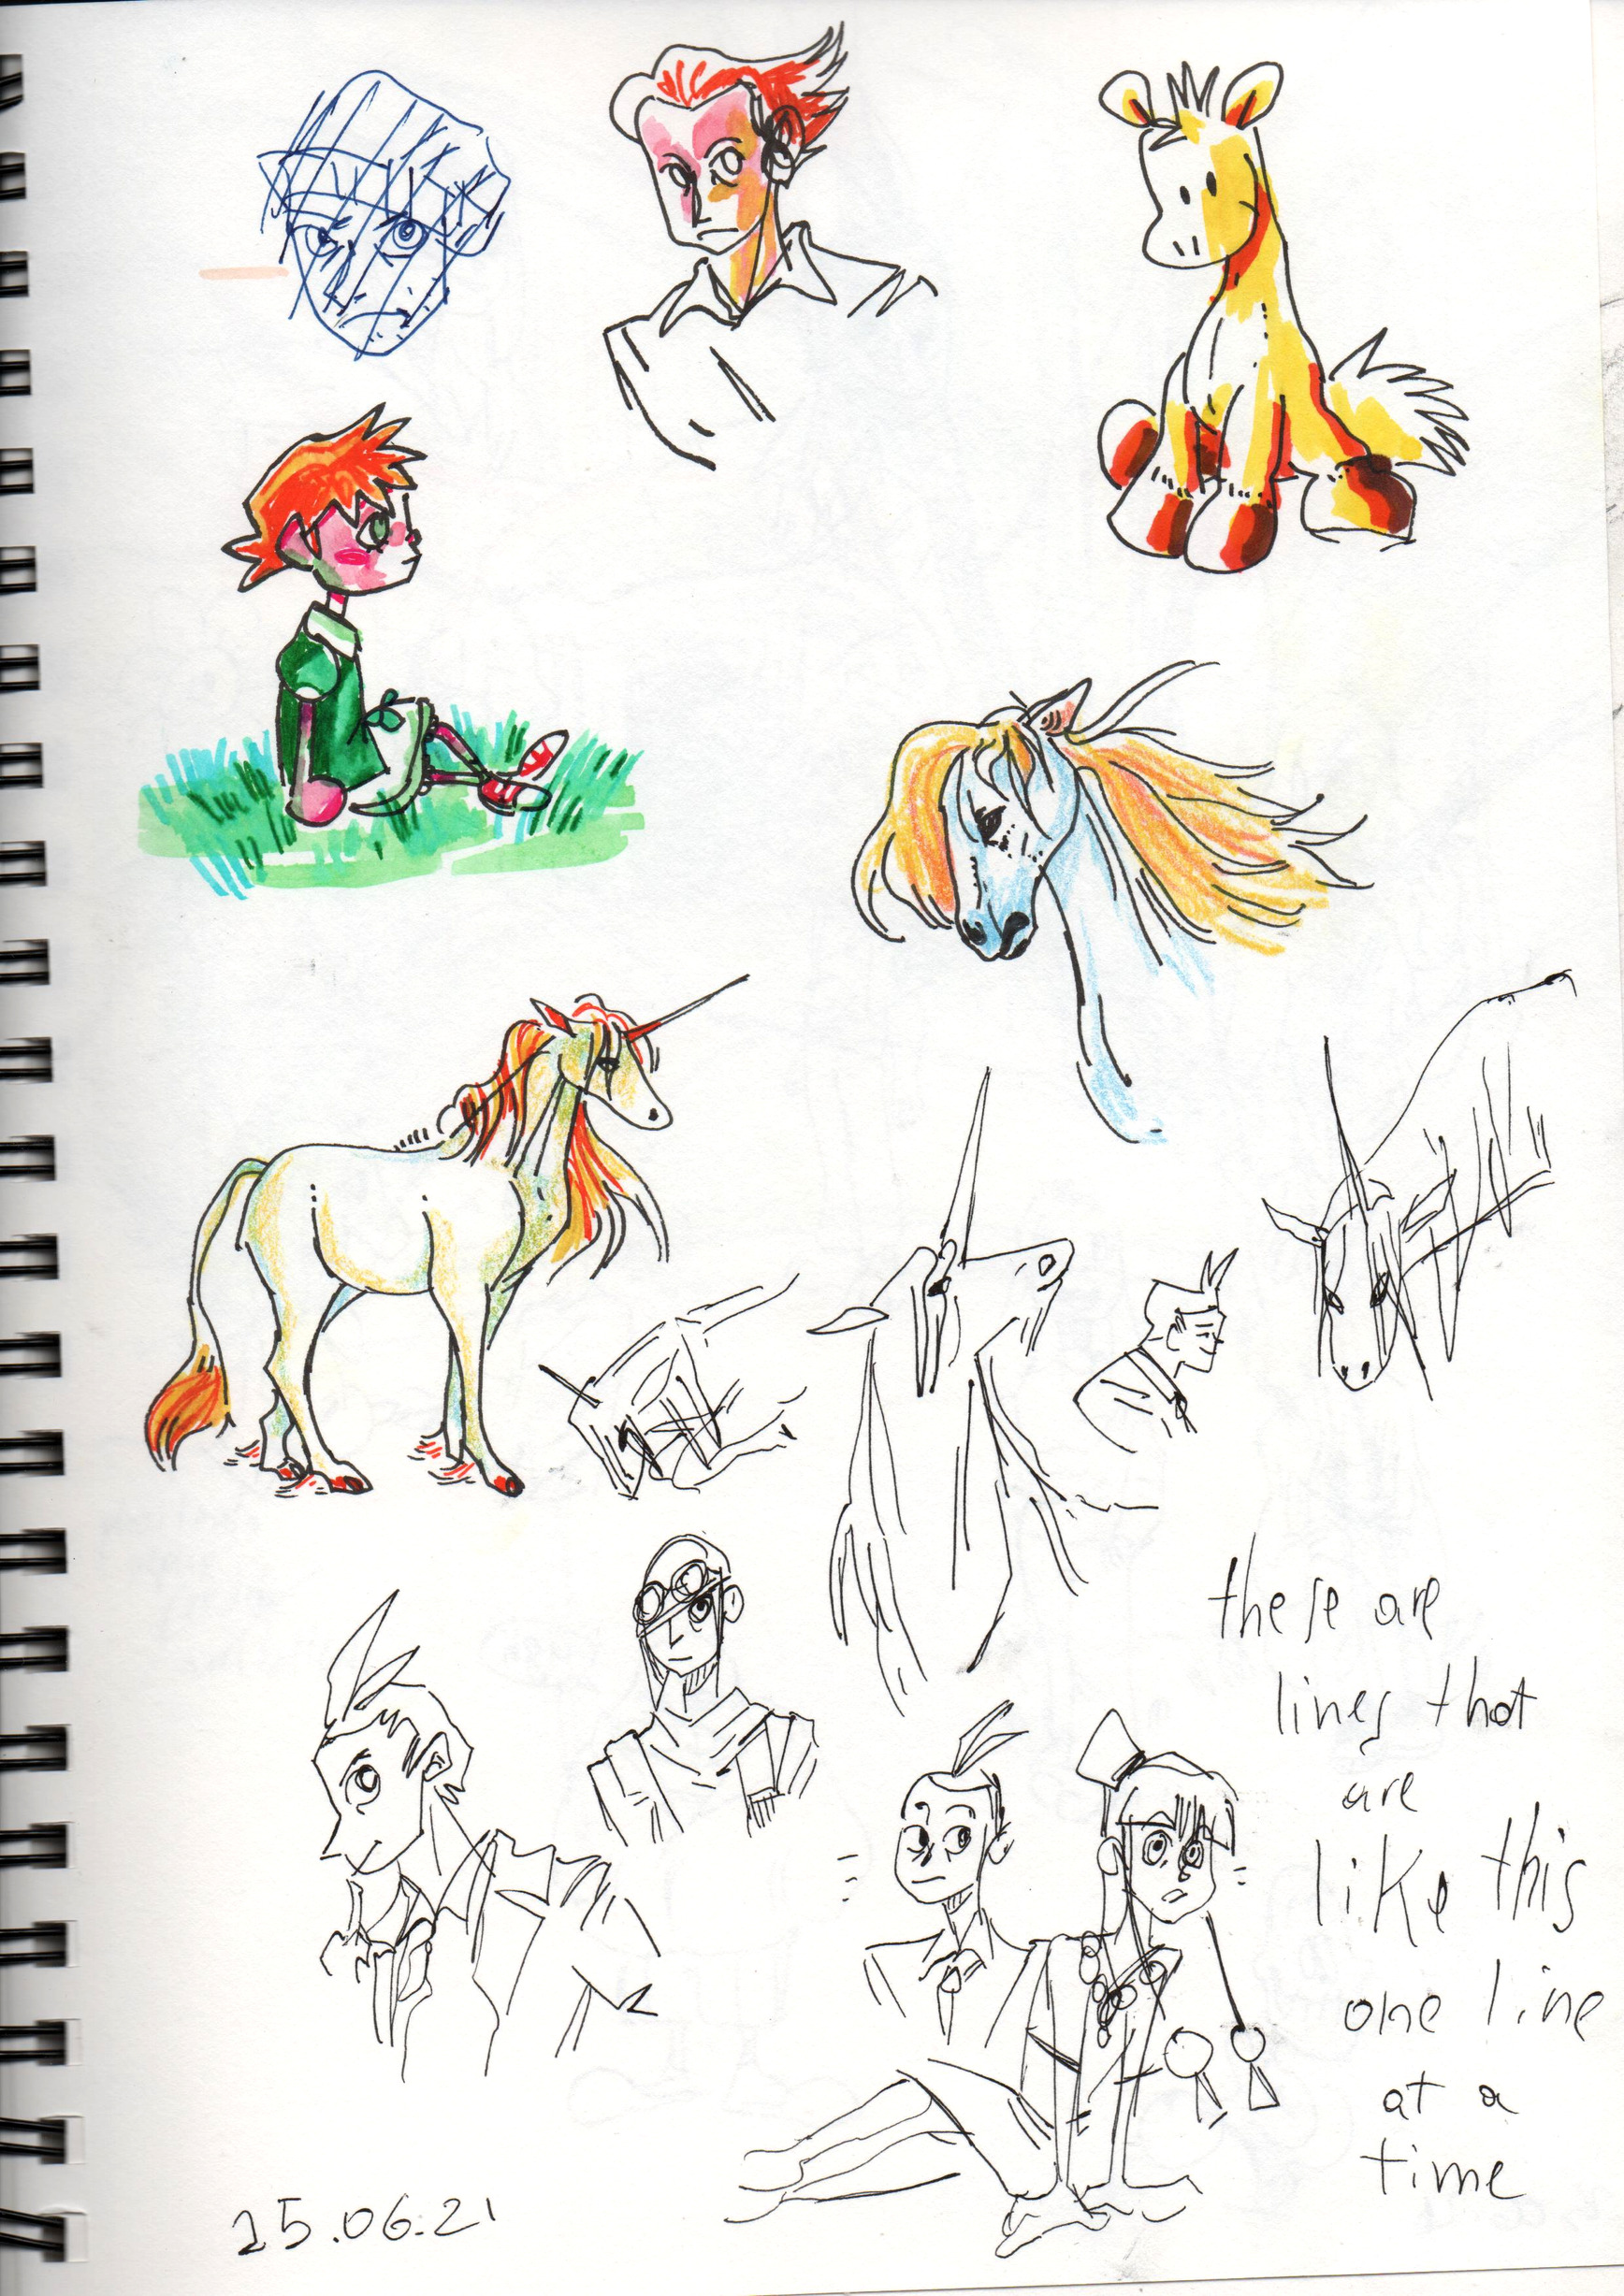 these are
lines that
are
like this
one line
at a
time
25.06.21